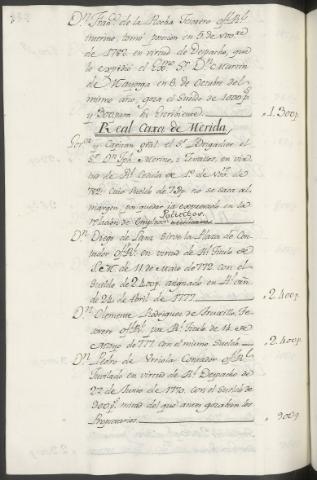 Dn. Franco. de la Rocha Tesorero ofl. Rl.
interino, tomó pocesion en 5. de Novre.
de 1782 en virtud de Despacho, que
le expidió el Exmo. Sr. Dn. Martin
de Mayorga en 8 de Octubre del
mismo año, goza el sueldo de 1000 ps.
y 300 para su Escriviente
1.300 p.
Real Caxa de Merida
Govor. y Capitan gral. el Sr. Brigadier el
Sr. Dn. Jph. Merino, i Zevallos, en vir
de Rl. Cedula de
782; cuio sueldo de no se saca al
margen por quedar ya expresado en la
relacion de Empleos Politicos.
Dn. Diego de Lanz sirve la Plaza de Con
tador ofl. Rl. en virtud de Rl. Titulo de
S.M. de 11 de Maio de 772 con el
sueldo de 2.400 p. asignado en Rl. ôrn.
de 24 de Abril de 1777
2.400 p.
Dn. Clemente Rodriguez de Truxillo Te-
sorero ofl. Rl. por Rl. Titulo de 14 de
Marzo de 777 con el mismo sueldo
2.400 p.
Dn. Pedro de Urriola Contador ofl. Rl.
Jubilado en virtud de Rl. Despacho de
22 de Junio de 1770, con el sueldo de
900 ps. mitad del que antes gozaban los
Propietarios
900 p.